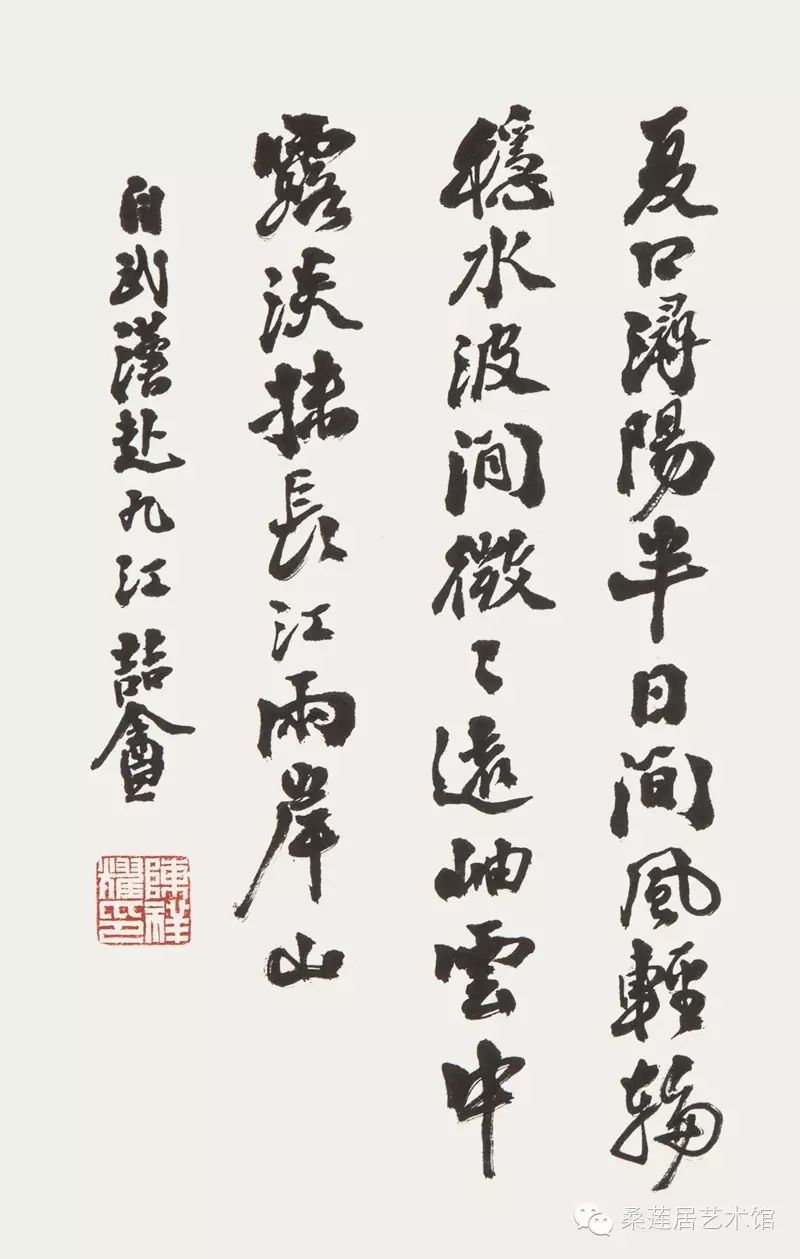 夏口潯陽半日間風輕輪
穩水波間微〻遠岫雲中
露淡抹長江兩岸山
自武漢赴九江 喆盦
陳祥耀印
桑莲居艺术馆